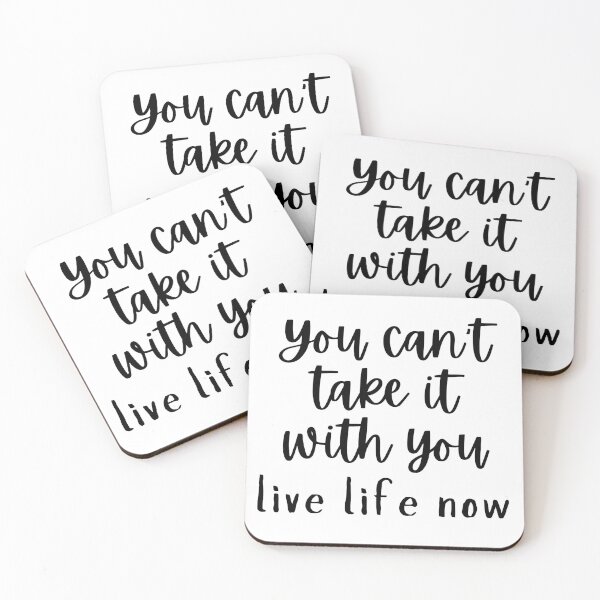 You can't
take it
you
You can't
take it
with you
You can't
take it
with you
live life
You can't
take it
with you
live life now